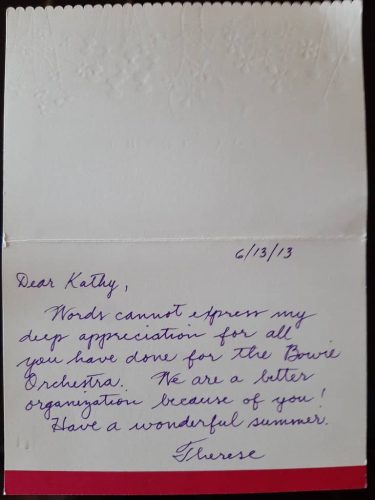 6/13/13
Dear Kathy,
Words cannot express my
deep appreciation for all
you have done for the Bowie
Orchestra. We are a better
organization because of you!
Have a wonderful summer.
Therese